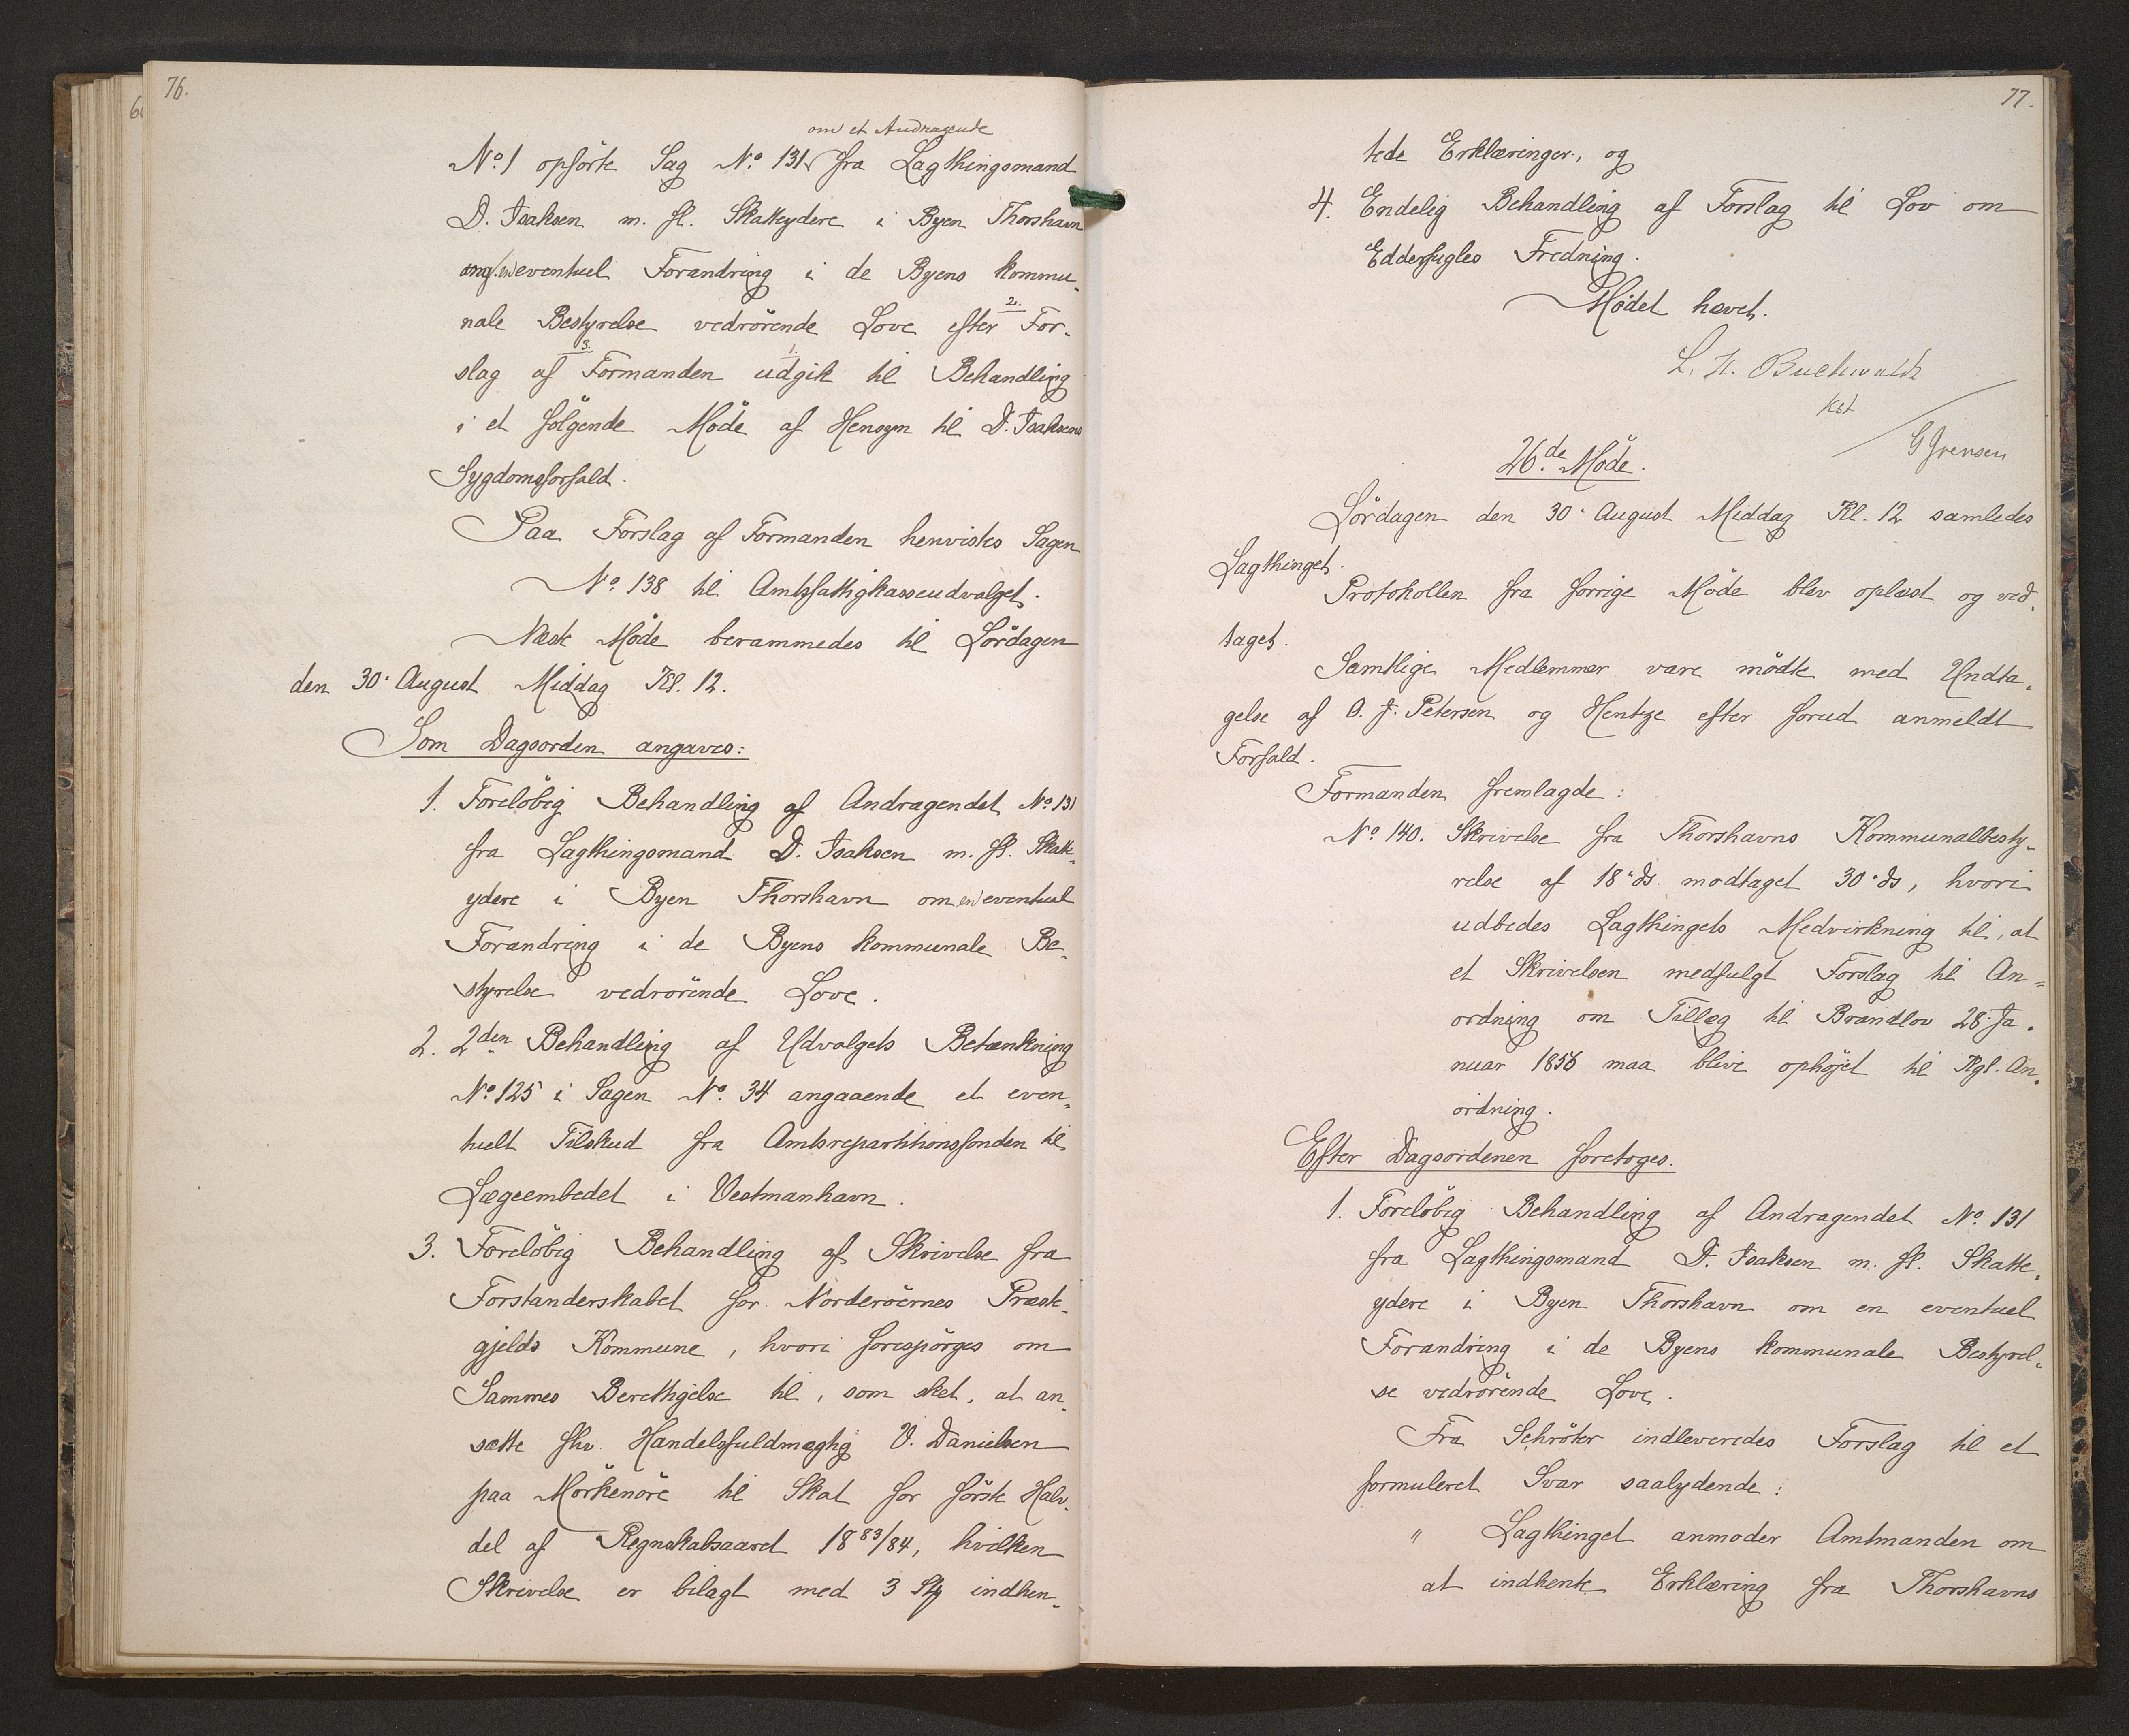 76.
om et Andragende
No. 1 opförte Sag No. 131 fra Lagthingsmand
D. Isaksen m. fl. Skatteydere i Byen Thorshavn
ang. en eventuel Forandring i de Byens kommu-
nale Bestyrelse vedrörende Love efter 2. For-
slag af 3. Formanden 1. udgik til Behandling
i et fölgende Möde af Hensyn til D. Isaksens
Sygdomsforfald.
Paa Forslag af Formanden henvistes Sagen
No. 138 til Amtsfattigkasseudvalget.
Næste Möde berammedes til Lördagen
den 30. August Middag Kl. 12.
Som Dagsorden angaves:
1. Forelöbig Behandling af Andragendet No. 131
fra Lagthingsmand D. Isaksen m. fl. Skatte-
ydere i Byen Thorshavn om en eventuel
Forandring i de Byens kommunale Be-
styrelse vedrörende Love.
2. 2den Behandling af Udvalgets Betænkning
No. 125 i Sagen No. 34 angaaende et even-
tuelt Tilskud fra Amtsrepartitionsfonden til
Lægeembedet i Vestmanhavn.
3. Forelöbig Behandling af Skrivelse fra
Forstanderskabet for Norderöernes Præste-
gjelds Kommune, hvori forespörges om
Sammes Berettigelse til, som sket, at an-
sætte fhv. Handelsfuldmægtig V. Danielsen
paa Mörkenöre til Skat for förste Halv-
del af Regnskabsaaret 1883/84, hvilken
Skrivelse er bilagt med 3 Stk indhen-
77.
tede Erklæringer, og
4. Endelig Behandling af Forslag til Lov om
Edderfugles Fredning.
Mödet hævet.
L. H. Buchwaldt
kst
G Jvensen
26de Möde.
Lördagen den 30. August Middag Kl. 12 samledes
Lagthinget.
Protokollen fra forrige Möde blev oplæst og ved-
taget.
Samtlige Medlemmer vare mödte med Undta-
gelse af O. J. Petersen og Hentze efter forud anmeldt
Forfald.
Formanden fremlagde:
No. 140. Skrivelse fra Thorshavns Kommunalbesty-
relse af 18. ds. modtaget 30. ds, hvori
udbedes Lagthingets Medvirkning til, at
et Skrivelsen medfulgt Forslag til An-
ordning om Tillæg til Brandlov 28. Ja-
nuar 1856 maa blive ophöjet til Kgl. An-
ordning.
Efter Dagsordenen foretoges.
1. Forelöbig Behandling af Andragendet No. 131
fra Lagthingsmand D. Isaksen m. fl. Skatte-
ydere i Byen Thorshavn om en eventuel
Forandring i de Byens kommunale Bestyrel-
se vedrörende Love.
Fra Schröter indleveredes Forslag til et
formuleret Svar saalydende:
" Lagthinget anmoder Amtmanden om
at indhente Erklæring fra Thorshavns